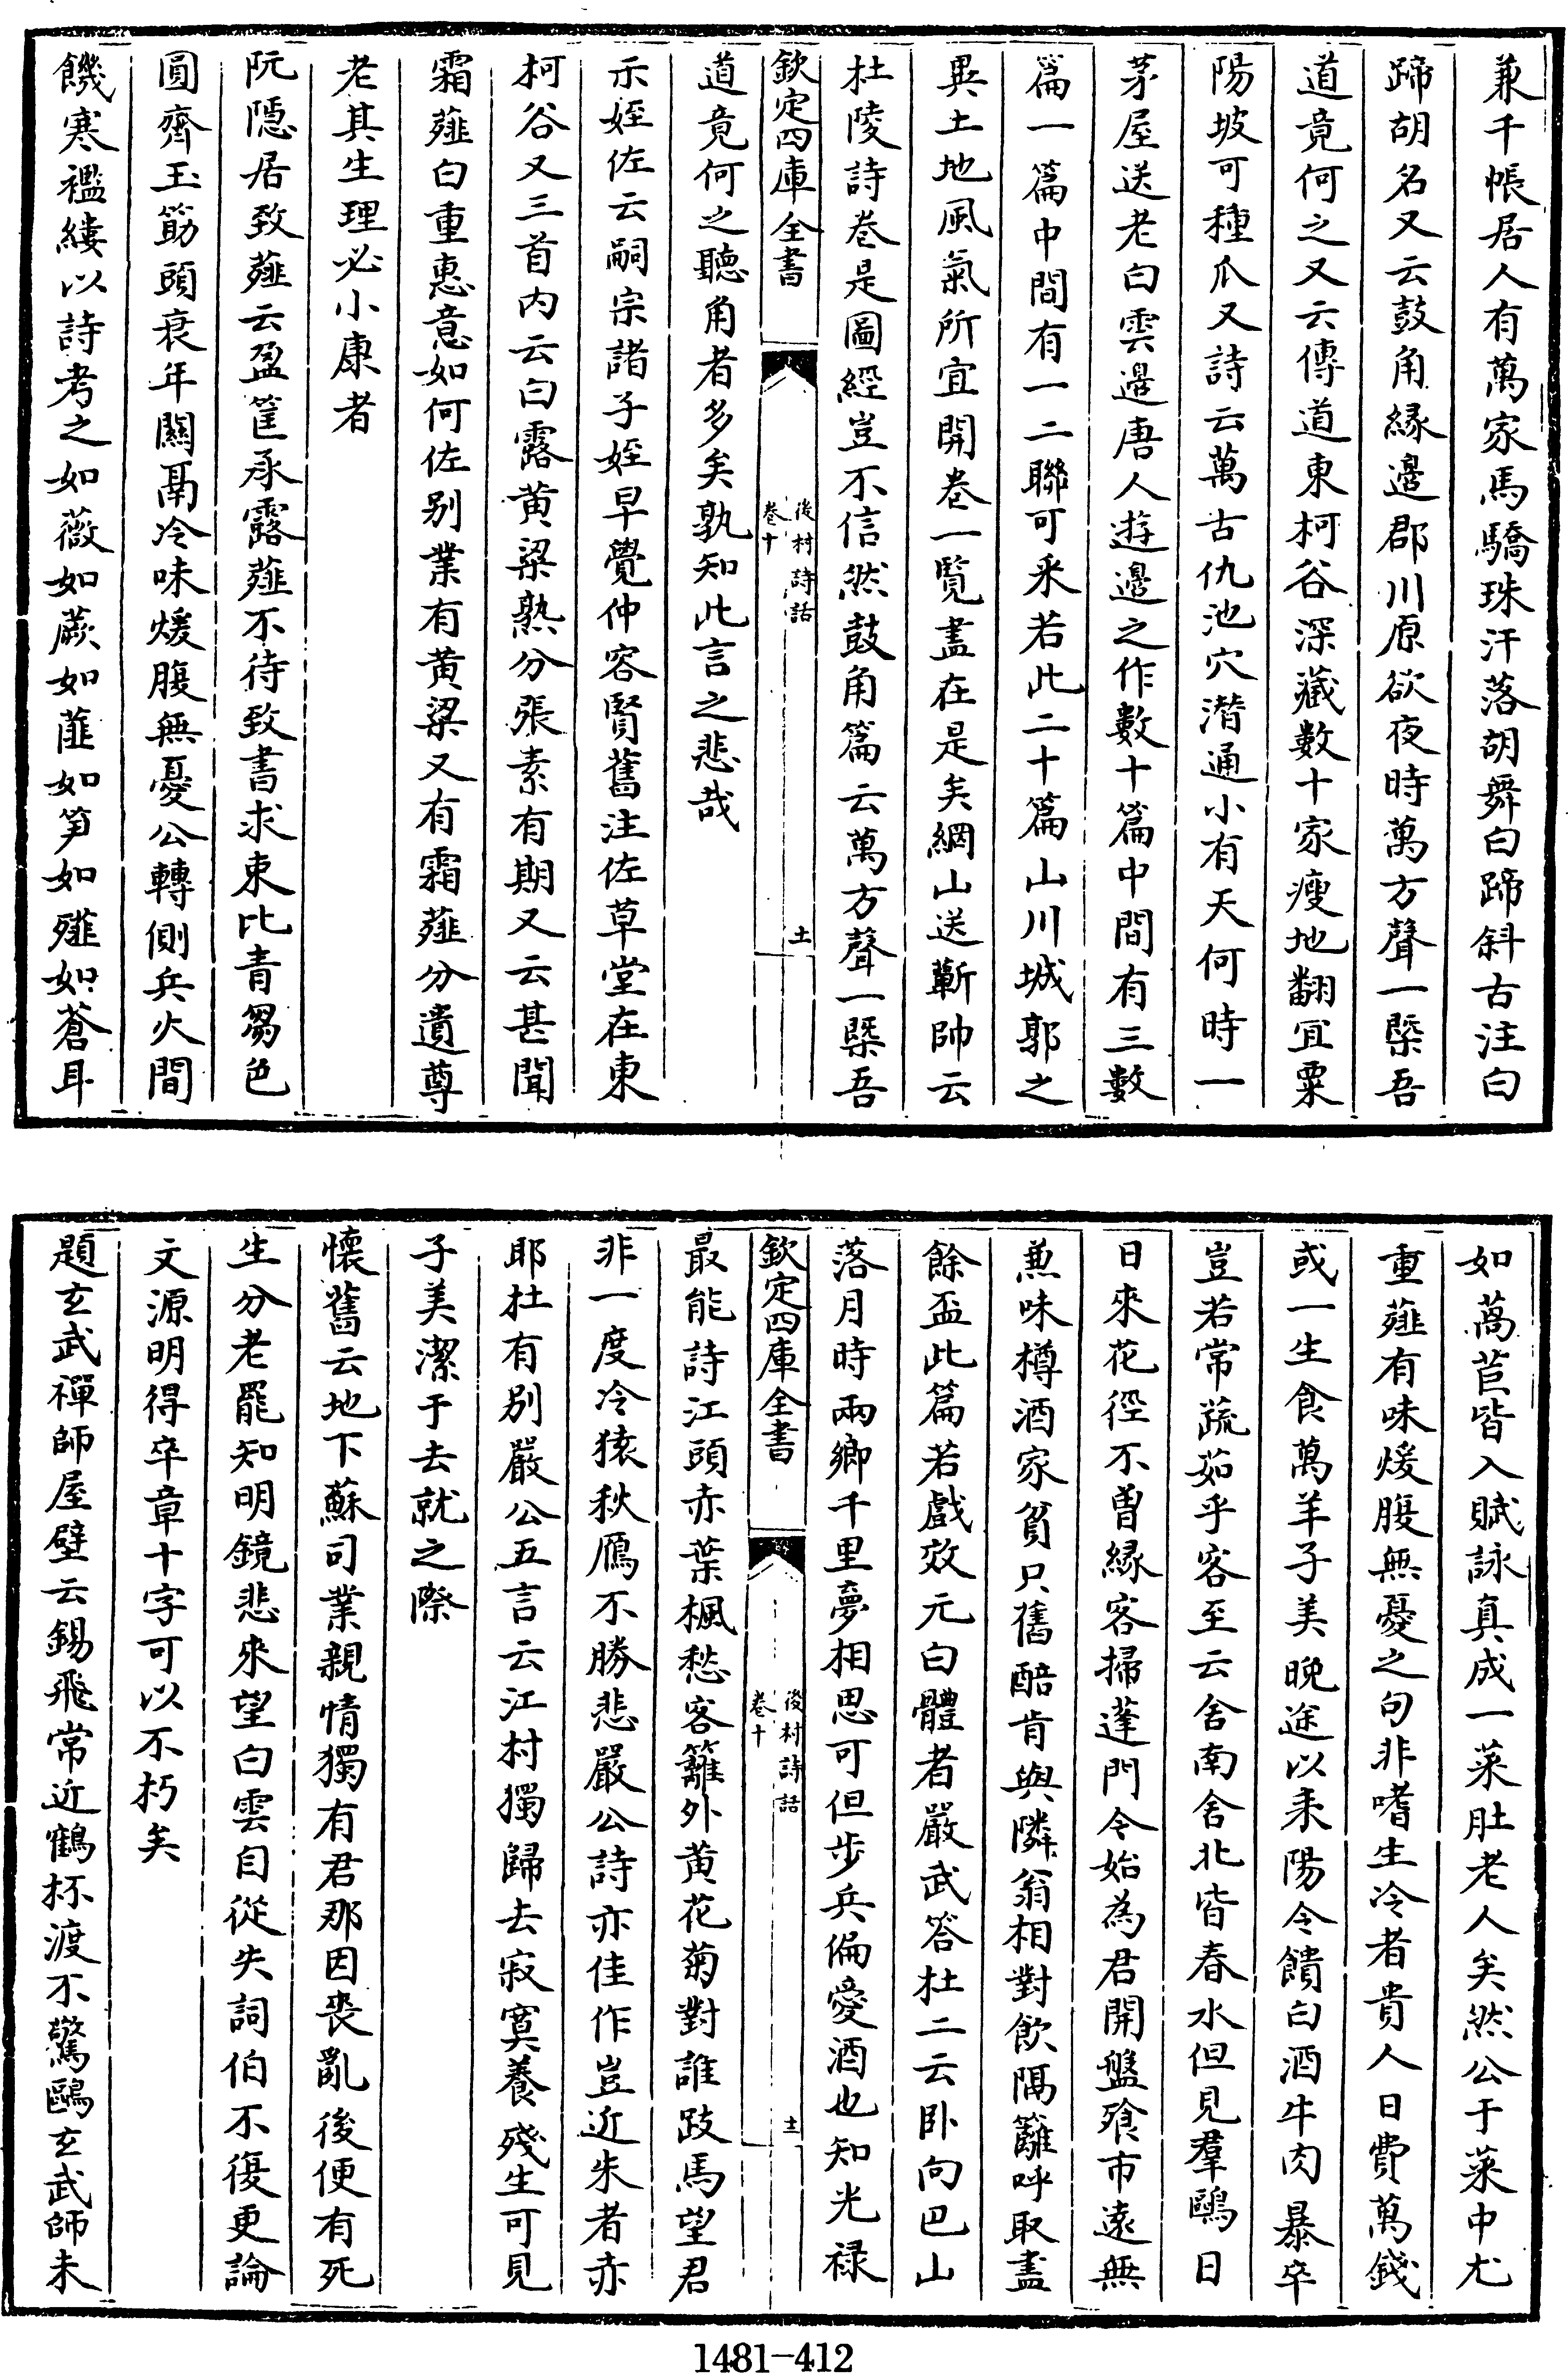 兼千帳居人有萬家馬驕珠汗落胡舞白蹄斜古注白
蹄胡名又云鼓角縁邉郡川原欲夜時萬方聲一槩吾
道竟何之又云傳道東柯谷深藏數十家瘦地翻宜粟
陽坡可種瓜又詩云萬古仇池穴潛通小有天何時一
茅屋送老白雲邉唐人遊邉之作數十篇中間有三數
篇一篇中間有一二聯可采若此二十篇山川城郭之
異土地風氣所宜開卷一覽盡在是矣網山送蘄帥云
杜陵詩卷是圖經豈不信然鼓角篇云萬方聲一槩吾
欽定四庫全書
後村詩話
卷十
土
道竟何之聽角者多矣孰知此言之悲哉
示姪佐云嗣宗諸子姪早覺仲容賢舊注佐草堂在東
柯谷又三首内云白露黄粱熟分張素有期又云甚聞
霜薤白重惠意如何佐别業有黄粱又有霜薤分遺尊
老其生理必小康者
阮隱居致薤云盈筐承露薤不待致書求束比青芻色
圓齊玉筯頭衰年關鬲冷味煖腹無憂公轉側兵火間
饑寒襤縷以詩考之如薇如蕨如韭如笋如薤如蒼耳
如萵苣皆入賦詠真成一菜肚老人矣然公于菜中尤
重薤有味煖腹無憂之句非嗜生冷者貴人日費萬錢
或一生食萬羊子美晚途以耒陽令饋白酒牛肉暴卒
豈若常蔬茹乎客至云舍南舍北皆春水但見羣鷗日
日來花徑不曽縁客掃蓬門今始為君開盤飱市遠無
兼味樽酒家貧只舊醅肯與隣翁相對飲隔籬呼取盡
餘盃此篇若戲效元白體者嚴武答杜二云卧向巴山
落月時兩鄉千里夢相思可但步兵偏愛酒也知光禄
欽定四庫全書
後村詩話
卷十
士
最能詩江頭赤葉楓愁客籬外黄花菊對誰跂馬望君
非一度冷猿秋鴈不勝悲嚴公詩亦佳作豈近朱者赤
耶杜有别嚴公五言云江村獨歸去寂寞養殘生可見
子美潔于去就之際
懷舊云地下蘇司業親情獨有君那因喪亂後便有死
生分老罷知明鏡悲來望白雲自從失詞伯不復更論
文源明得卒章十字可以不朽矣
題玄武禪師屋壁云錫飛常近鶴杯渡不驚鷗玄武師未
1481-412